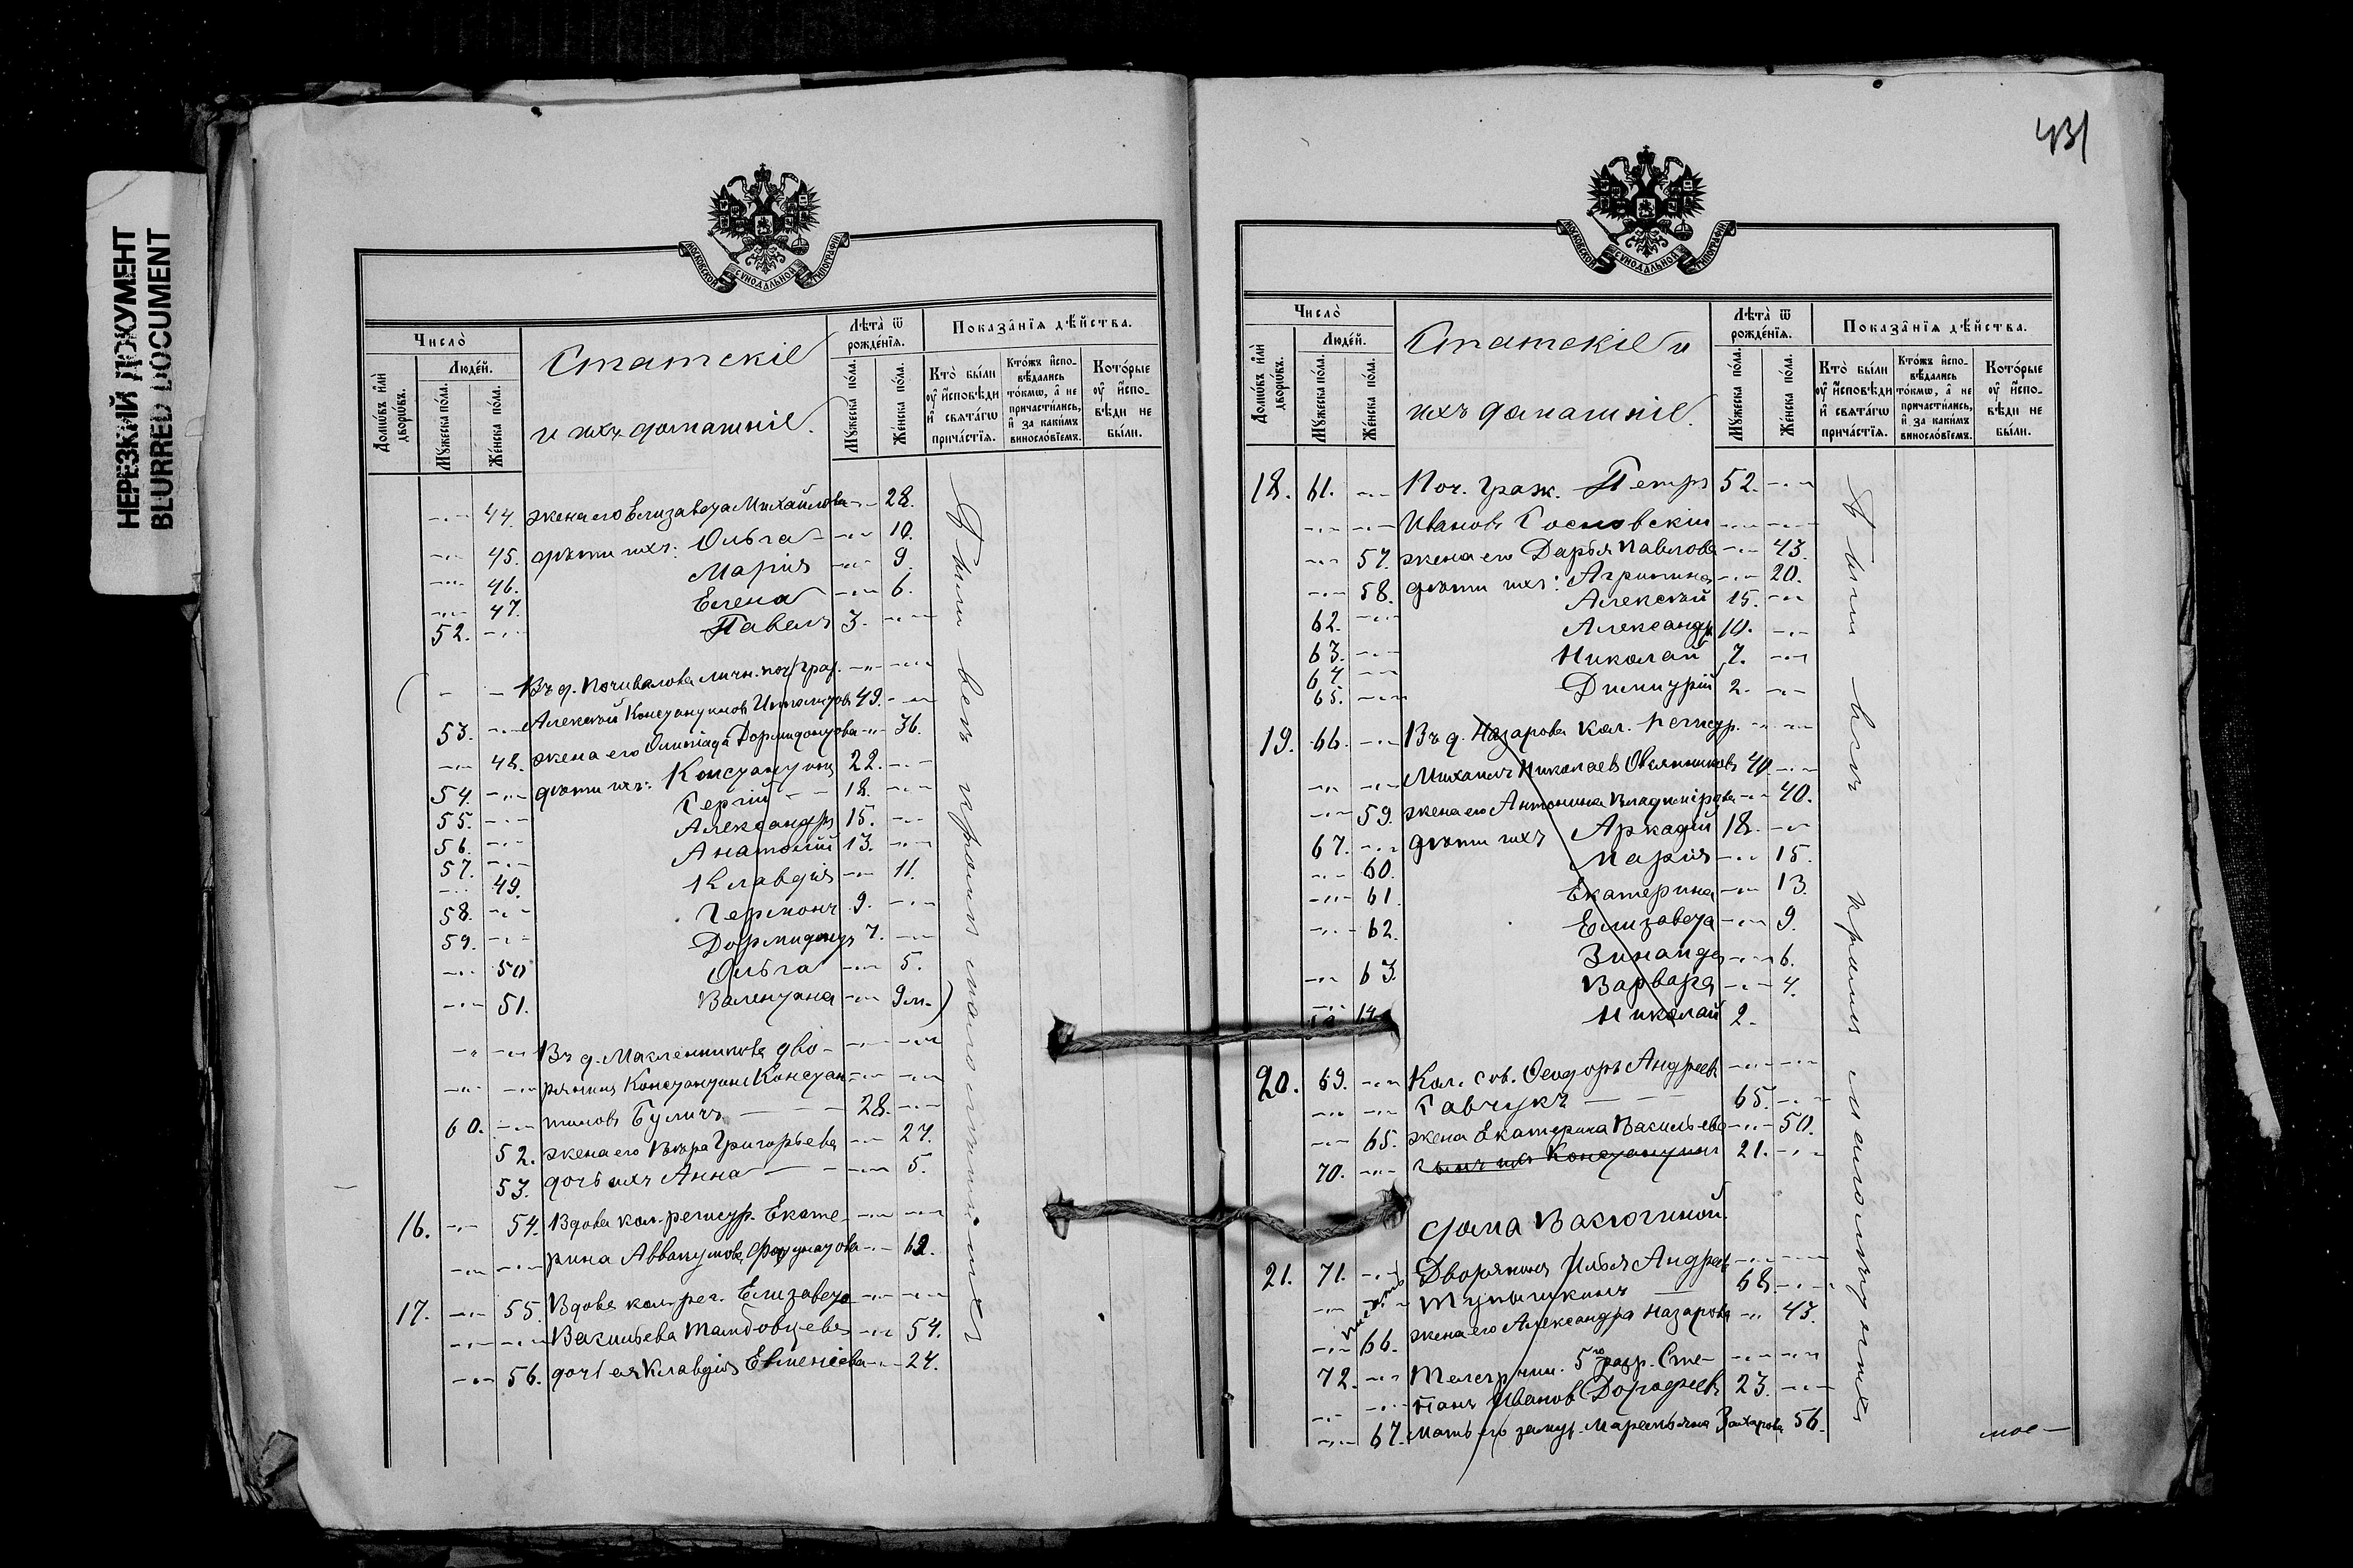 НЕРЕЗКИЙ ДОКУМЕНТ
BLURRED DOCUMENT
МОСКОВСКОЙ СѴНОДАЛЬНОЙ ТИПОГРАФІИ
Число̀
Домѡ́въ и҆лѝ дворѡ́въ.
Люде́й.
Мꙋ́жеска по́ла.
Же́нска по́ла.
Статскіе
и ихъ домашніе.
Лѣта̀ ѿ рожде́нїѧ.
Мꙋ́жеска по́ла.
Же́нска по́ла.
Показа̂нїѧ дѣ́йства.
Кто̀ бы́ли оу҆ и҆́сповѣди и҆ свѧта́гѡ прича́стїѧ.
Кто́жъ и҆спо-вѣ́дались то́кмѡ, а҆ не причасти́лись, и҆ за каки́мъ винословїемъ.
Кото́рые оу҆ и҆́спо-вѣди не бы́ли.
44. жена его Елизавета Михайлова 28.
45. дѣти ихъ: Ольга 10.
46. Марія 9.
47. Елена 6.
52. Павелъ 3.
Въ д. Почивалова личн. поч. граж.
53. Алексѣй Константиновъ Ипполитовъ 49.
48. жена его Олимпіада Дормидонтова 36.
54. дѣти ихъ: Константинъ 22.
55. Сергій 18.
56. Александръ 15.
57. Анатолій 13.
49. Клавдія 11.
58. Германъ 9.
59. Дормидонтъ 7.
50 Ольга 5.
51. Валентина 9 м.
Въ д. Масленникова дво-
рянинъ Константинъ Констан-
60. тиновъ Буличъ 28.
52. жена его Вѣра Григорьева 27.
53. дочь ихъ Анна 5.
16. 54. Вдова кол. регистр. Екате-
рина Аввакумова Фортунатова 62.
17. 55. Вдова кол. рег. Елизавета
Васильева Тамбовцева 54.
56. дочь ея Клавдія Евменіева 24.
Были всѣ кромѣ малолѣтнихъ
431
МОСКОВСКОЙ СѴНОДАЛЬНОЙ ТИПОГРАФІИ
Число̀
Домѡ́въ и҆лѝ дворѡ́въ.
Люде́й.
Мꙋ́жеска по́ла.
Же́нска по́ла.
Статскіе и
ихъ домашніе.
Лѣта̀ ѿ рожде́нїѧ.
Мꙋ́жеска по́ла.
Же́нска по́ла.
Показа̂нїѧ дѣ́йства.
Кто̀ бы́ли оу҆ и҆́сповѣди и҆ свѧта́гѡ прича́стїѧ.
Кто́жъ и҆спо-вѣ́дались то́кмѡ, а҆ не причасти́лись, и҆ за каки́мъ винословїемъ.
Кото́рые оу҆ и҆́спо-вѣди не бы́ли.
18. 61. Поч. граж. Петръ 52.
Ивановъ Сосновскій
57. жена его Дарья Павлова 43.
58. дѣти ихъ: Агрипина 20.
62. Алексѣй 15.
63. Александръ 10.
64 Николай 7.
65. Димитрій 2.
19. 66. Въ д. Назарова Кол. регистр.
Михаилъ Николаевъ Овсянниковъ 40.
59. жена его Антонина Владимірова 40.
67. дѣти ихъ Аркадій 18.
60. Марія 15.
61. Екатерина 13.
62. Елизавета 9.
Зинаида 6.
63. Варвара 4.
Николай 2.
20. 69. Кол. Сов. Ѳеодоръ Андреевъ
Савчукъ 65.
65. жена Екатерина Васильева 50.
70. сынъ ихъ Константинъ 21.
дома Васюгиной
21. 71. Дворянинъ Илья Андреевъ
68.
66. жена его Александра Назарова 43.
72. Телегр. чин. 5го разр. Сте-
панъ Ивановъ Дорофеевъ 23.
67. Мать его Захарова 56.
Были всѣ кромѣ малолѣтнихъ